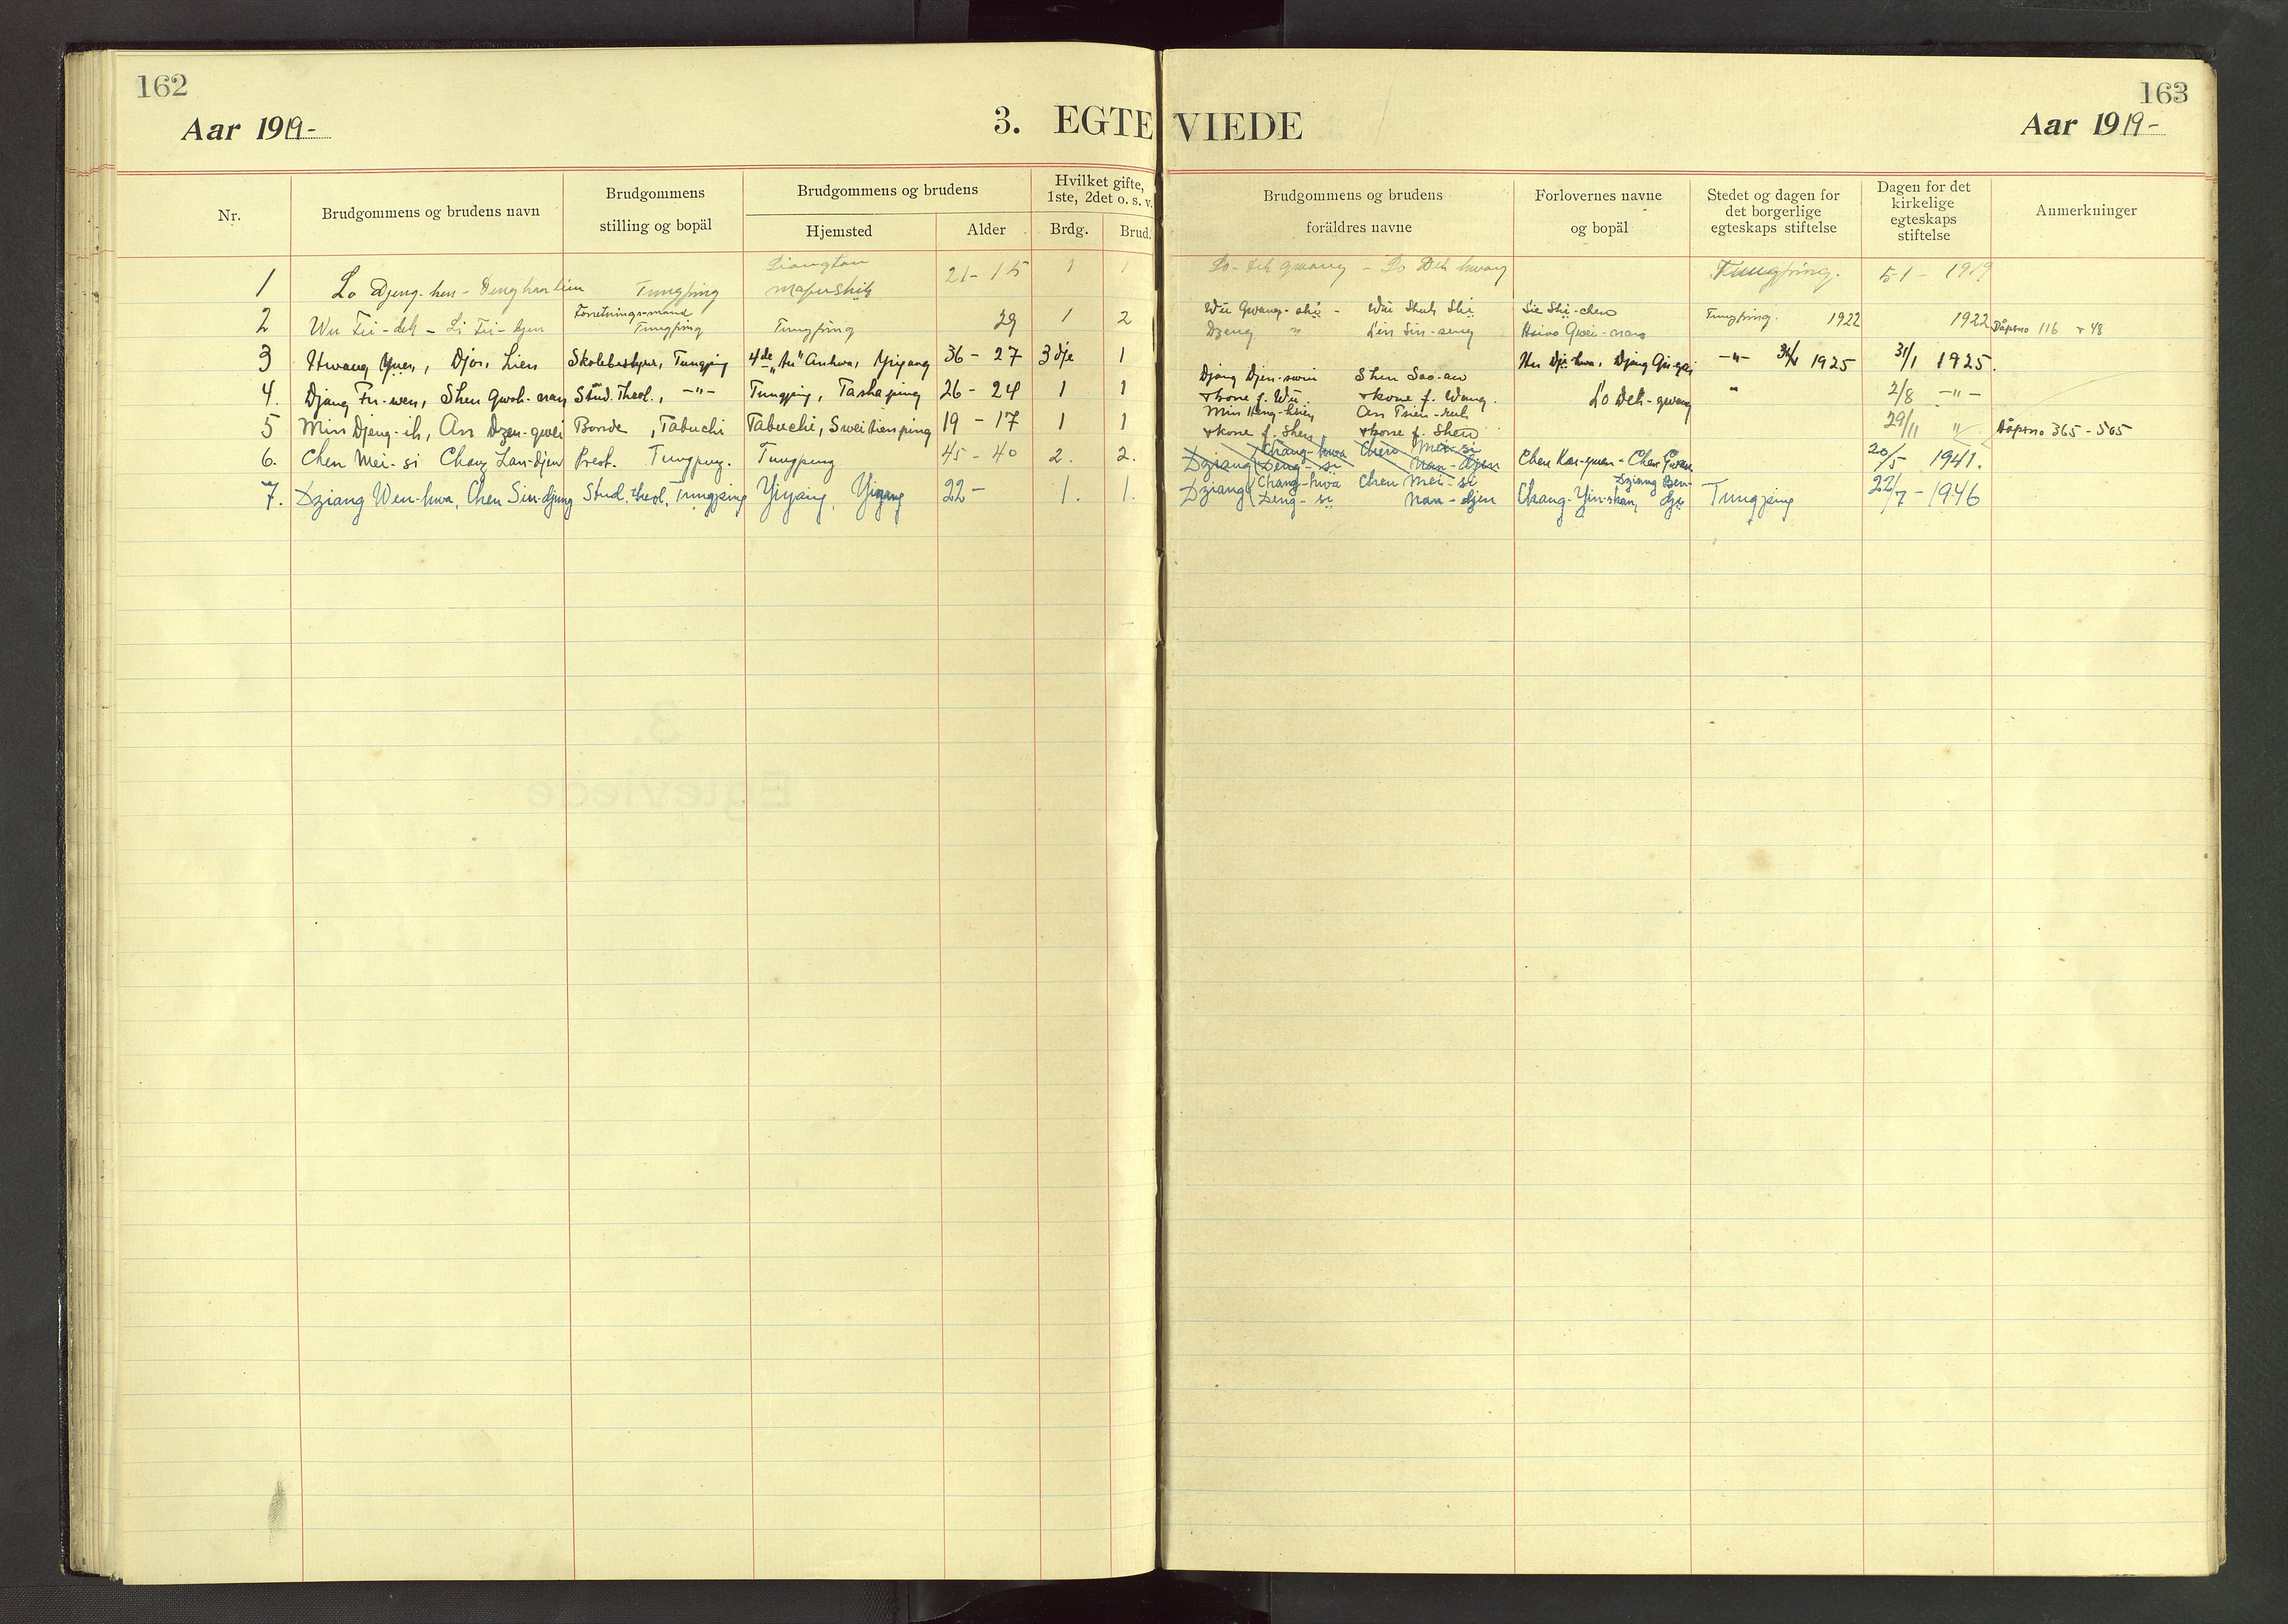 162
Aar 1919-
3. EGTEVIEDE
163
Aar 1919-
Nr.
Brudgommens og brudens navn
Brudgommens stilling og bopäl
Brudgommens og brudens
Hjemsted
Alder
Hvilket gifte, 1ste, 2det o. s. v.
Brdg.
Brud.
Brudgommens og brudens foräldres navne
Forlovernes navne og bopäl
Stedet og dagen for det borgerlige egteskaps stiftelse
Dagen for det kirkelige egteskaps stiftelse
Anmerkninger
1 Lo Djeng-hen - Tungping Liangtan 21-15 1 1 Lo-Deh gwang - Lo Deh hwang Tungping. 5-1-1919
2 Wu Fei-deh - Li Fei-djen Forretningsmand Tungping Tungping 29 1 2 Wu Gwang-shi - Wu Shuh Shi Sie Shi-chen Tungping. 1922 1922 Dåpsno 116 + 48
Dzeng " Lin Sin-seng Hsiao Gwei-nan
3 Hwang Yuen, Djou Lien Skolebestyrer, Tungping 4de "Au" Anhwa, Yiyang 36-27 3dje 1 Hu Dji-hwa, -"- 31/1 1925 31/1 1925.
4. Djang Fu-wen, Shen Gwoh-nan Stud. Theol., -"- Tungping, Tashaping 26-24 1 1 Djang Djen-swin Shen Sao-an Lo Deh-gwang " 2/8 -"-
+ kone f. Wu + kone f. Wang.
5 Min Djeng-ih, An Dzen-gwei Bonde, Tabuchi Tabuchi, Sweitienping 19-17 1 1 Min Heng-hsien An Tsien-ruh 29/11 " Dåpsno 365-505
+ kone f. Shen, + kone f. Shen
6. Chen Mei-si Chang Lan-djen Prest. Tungping. Tungping 45-40 2. 2. Dziang Chang-hwa Deng-si Chen Mei-si Nan-djen Chen Kai-yuen - 20/5 1941.
7. Dziang Wen-hwa, Chen Sin-djung Stud. theol. Tungping Yiyang, Yiyang 22- 1. 1. Dziang Chang-hwa Deng-si Chen Mei-si Nan-djen Chang-Yin-shan, Dziang Ben-dji Tungping 22/7-1946